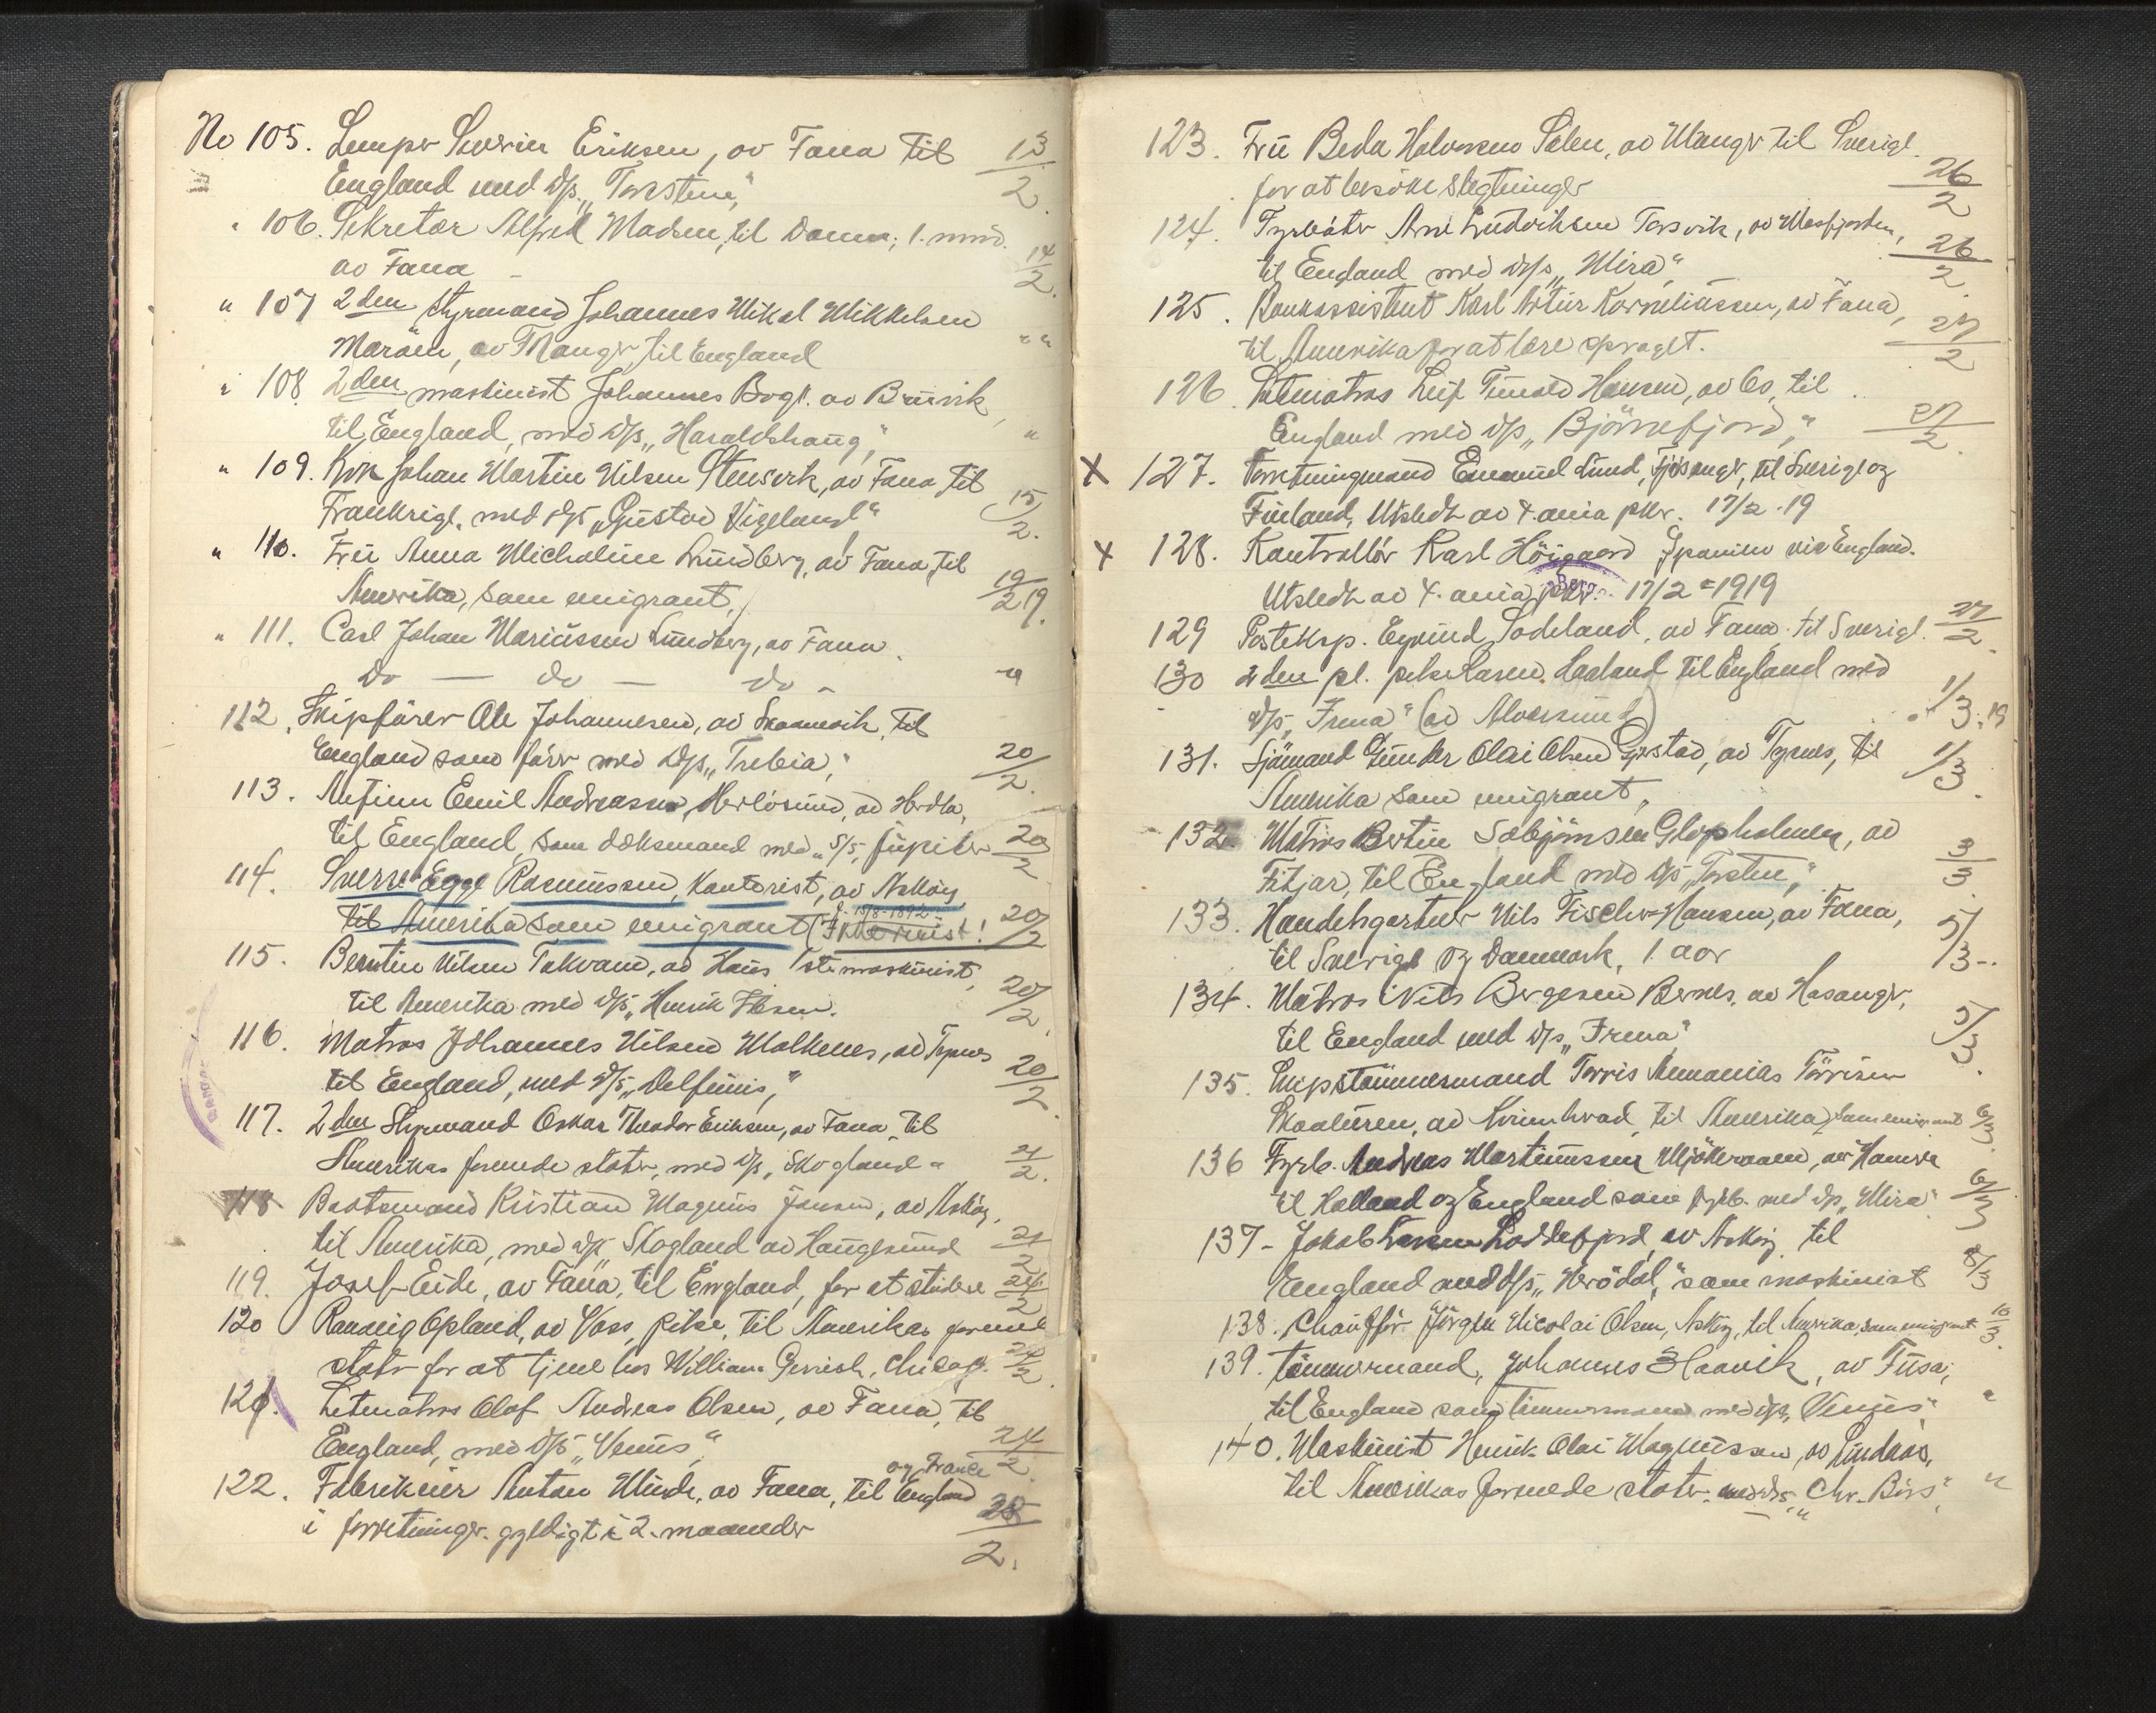 No 105. Lemper Severin Eriksen, av Fana til 13/2
England med d/s „Torsten“
" 106. Sekretær Alfred Madsen, til Danm, 1. mnd.
av Fana 14/2
" 107 2den styrmand Johannes Mikal Mikkelsen
Marøen, av Manger, til England " "
" 108 2den maskinist Johannes Boge. av Bruvik,
til England, med d/s „Haraldshaug“ "
" 109. Kok Johan Martin Nilsen Stensvik, av Fana til
Frankrige, med d/s „Gustav Vigeland“ 15/2.
" 110. Fru Anna Micholine Lundberg, av Fana, til
Amerika, som emigrant, 19/2 19.
" 111. Carl Johan Mariussen Lundberg, av Fana
Do — do — do - "
112. Skipsfører Ole Johannesen, av Skaanevik, til
England som fører med D/s „Trebia“ 20/2.
113. Antinn Emil Andreassen, Herløsund, av Herdla,
til England, som dæksmand med „S/s Jupiter 20/2
114. Sverre Egge Rasmussen, kontorist, av Askøy,
f. 15/8-1892-
til Amerika som emigrant 20/2
115. Berntin Nilsen Takvam, av Haus 1ste maskinist,
til Amerika med d/s „Henrik Ibsen. 20/2
116. Matros Johannes Nilsen Malkenes, av Tysnes
til England, med d/s „Delfinus,“ 20/2
117. 2den Styrmand Oskar Theodor Eriksen, av Fana, til
Amerikas forenede stater, med d/s, Skogland " 21/2.
118 Baatsmand Kristian Magnus Jensen, av Askøy,
til Amerika, med d/s Skogland av Haugesund 21/2
119. Josef Eide, av Fana, til England, for at studere 24/2
120 Rannvig Opland, av Voss, pike, til Amerikas forenede
stater for at tjene hos William Gerrish, Chicago. 24/2
121. Letmatros Olaf Andreas Olsen, av Fana, til
England, med D/s „Venus“ 24/2
og France
122. Fabrikeier Anton Munde, av Fana, til England
i forretninger. gyldigt i 2. maaneder 25/2.
123. Fru Beda Halvorsen Sælen, av Manger til Sverige.
for at besøke slegtninger 26/2
124. Fyrbøter Arne Ludviksen Torsvik, av Masfjorden,
til England med D/s „Mira“ 26/2.
125. Bankassistent Karl Artur Korneliussen, av Fana,
til Amerika for at lære sproget. 27/2
126. Letmatros Leif Hansen, av Os, til
England med d/s „Bjørnefjord,“ 27/2
X 127. Forretningsmand Emanuel Lund, Fjøsanger, til Sverige og
Finland, Utstedt av 4. ania pkr. 17/2 . 19
X 128. Kontrollør Karl Høigaard Spanien via England.
Utstedt av 4. ania pkr. 17/2 = 1919
129 Posteksp. Eyvind Sodeland, av Fana. til Sverige. 27/2.
130 2den pl. pike Hagland til England med
d/s „Irma“ (av Alversund) 1/3.19
131. Sjømand Gunder Olai Olsen Gjerstad, av Tysnes, til
Amerika som emigrant, 1/3.
132. Matros Bertin Sæbjørnsen Glopholmen, av
Fitjar, til England med d/s „Torsten,“ 3/3
133. Handelsgartner Nils Fischer-Hansen, av Fana,
til Sverige og Danmark, 1. aar 5/3-.
134. Matros Nils Bergesen Bernes, av Hosanger,
til England med d/s „Irma“ 5/3.
135. Skipstømmesmand Torris Annanias Tørrisen
Skaaluren, av Kvinnherad, til Amerika, som emigrant 6/3
136 Fyrb. Andreas Martinussen Mjøkeraaen, av Hamre
til Holland og England som fyrb. med d/s „Mira“ 6/3
137- Jakob Larsen Loddefjord, av Askøy, til
England med d/s „Herødal,“ som maskinist 8/3
138. Chauffør Jørgen Nicolai Olsen, Askøy, til Amerika, som emigrant 10/3.
139. tømmermand, Johannes Haavik, av Fusa,
til England som tømmermand med d/s „Venus“ "
140. Maskinist Henrik Olai Magnussen, av Lindaas,
til Amerikas forenede stater. med d/s „Chr. Børs“ "